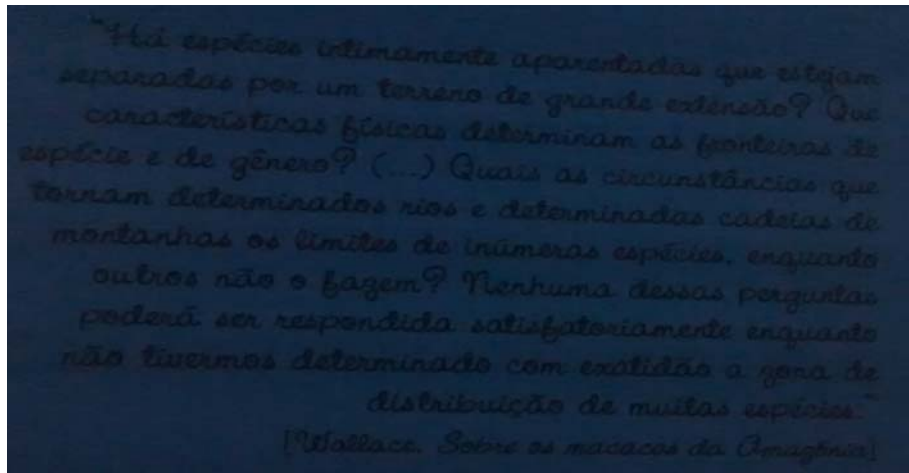 "Há espécies intimamente aparentadas que estejam
separadas por um terreno de grande extensão? Que
características físicas determinam as fronteiras de
espécie e de gênero? (...) Quais as circunstâncias que
tornam determinados rios e determinadas cadeias de
montanhas os limites de inúmeras espécies, enquanto
outros não o fazem? Nenhuma dessas perguntas
poderá ser respondida satisfatoriamente enquanto
não tivermos determinado com exatidão a zona de
distribuição de muitas espécies."
[Wallace. Sobre os macacos da Amazônia]